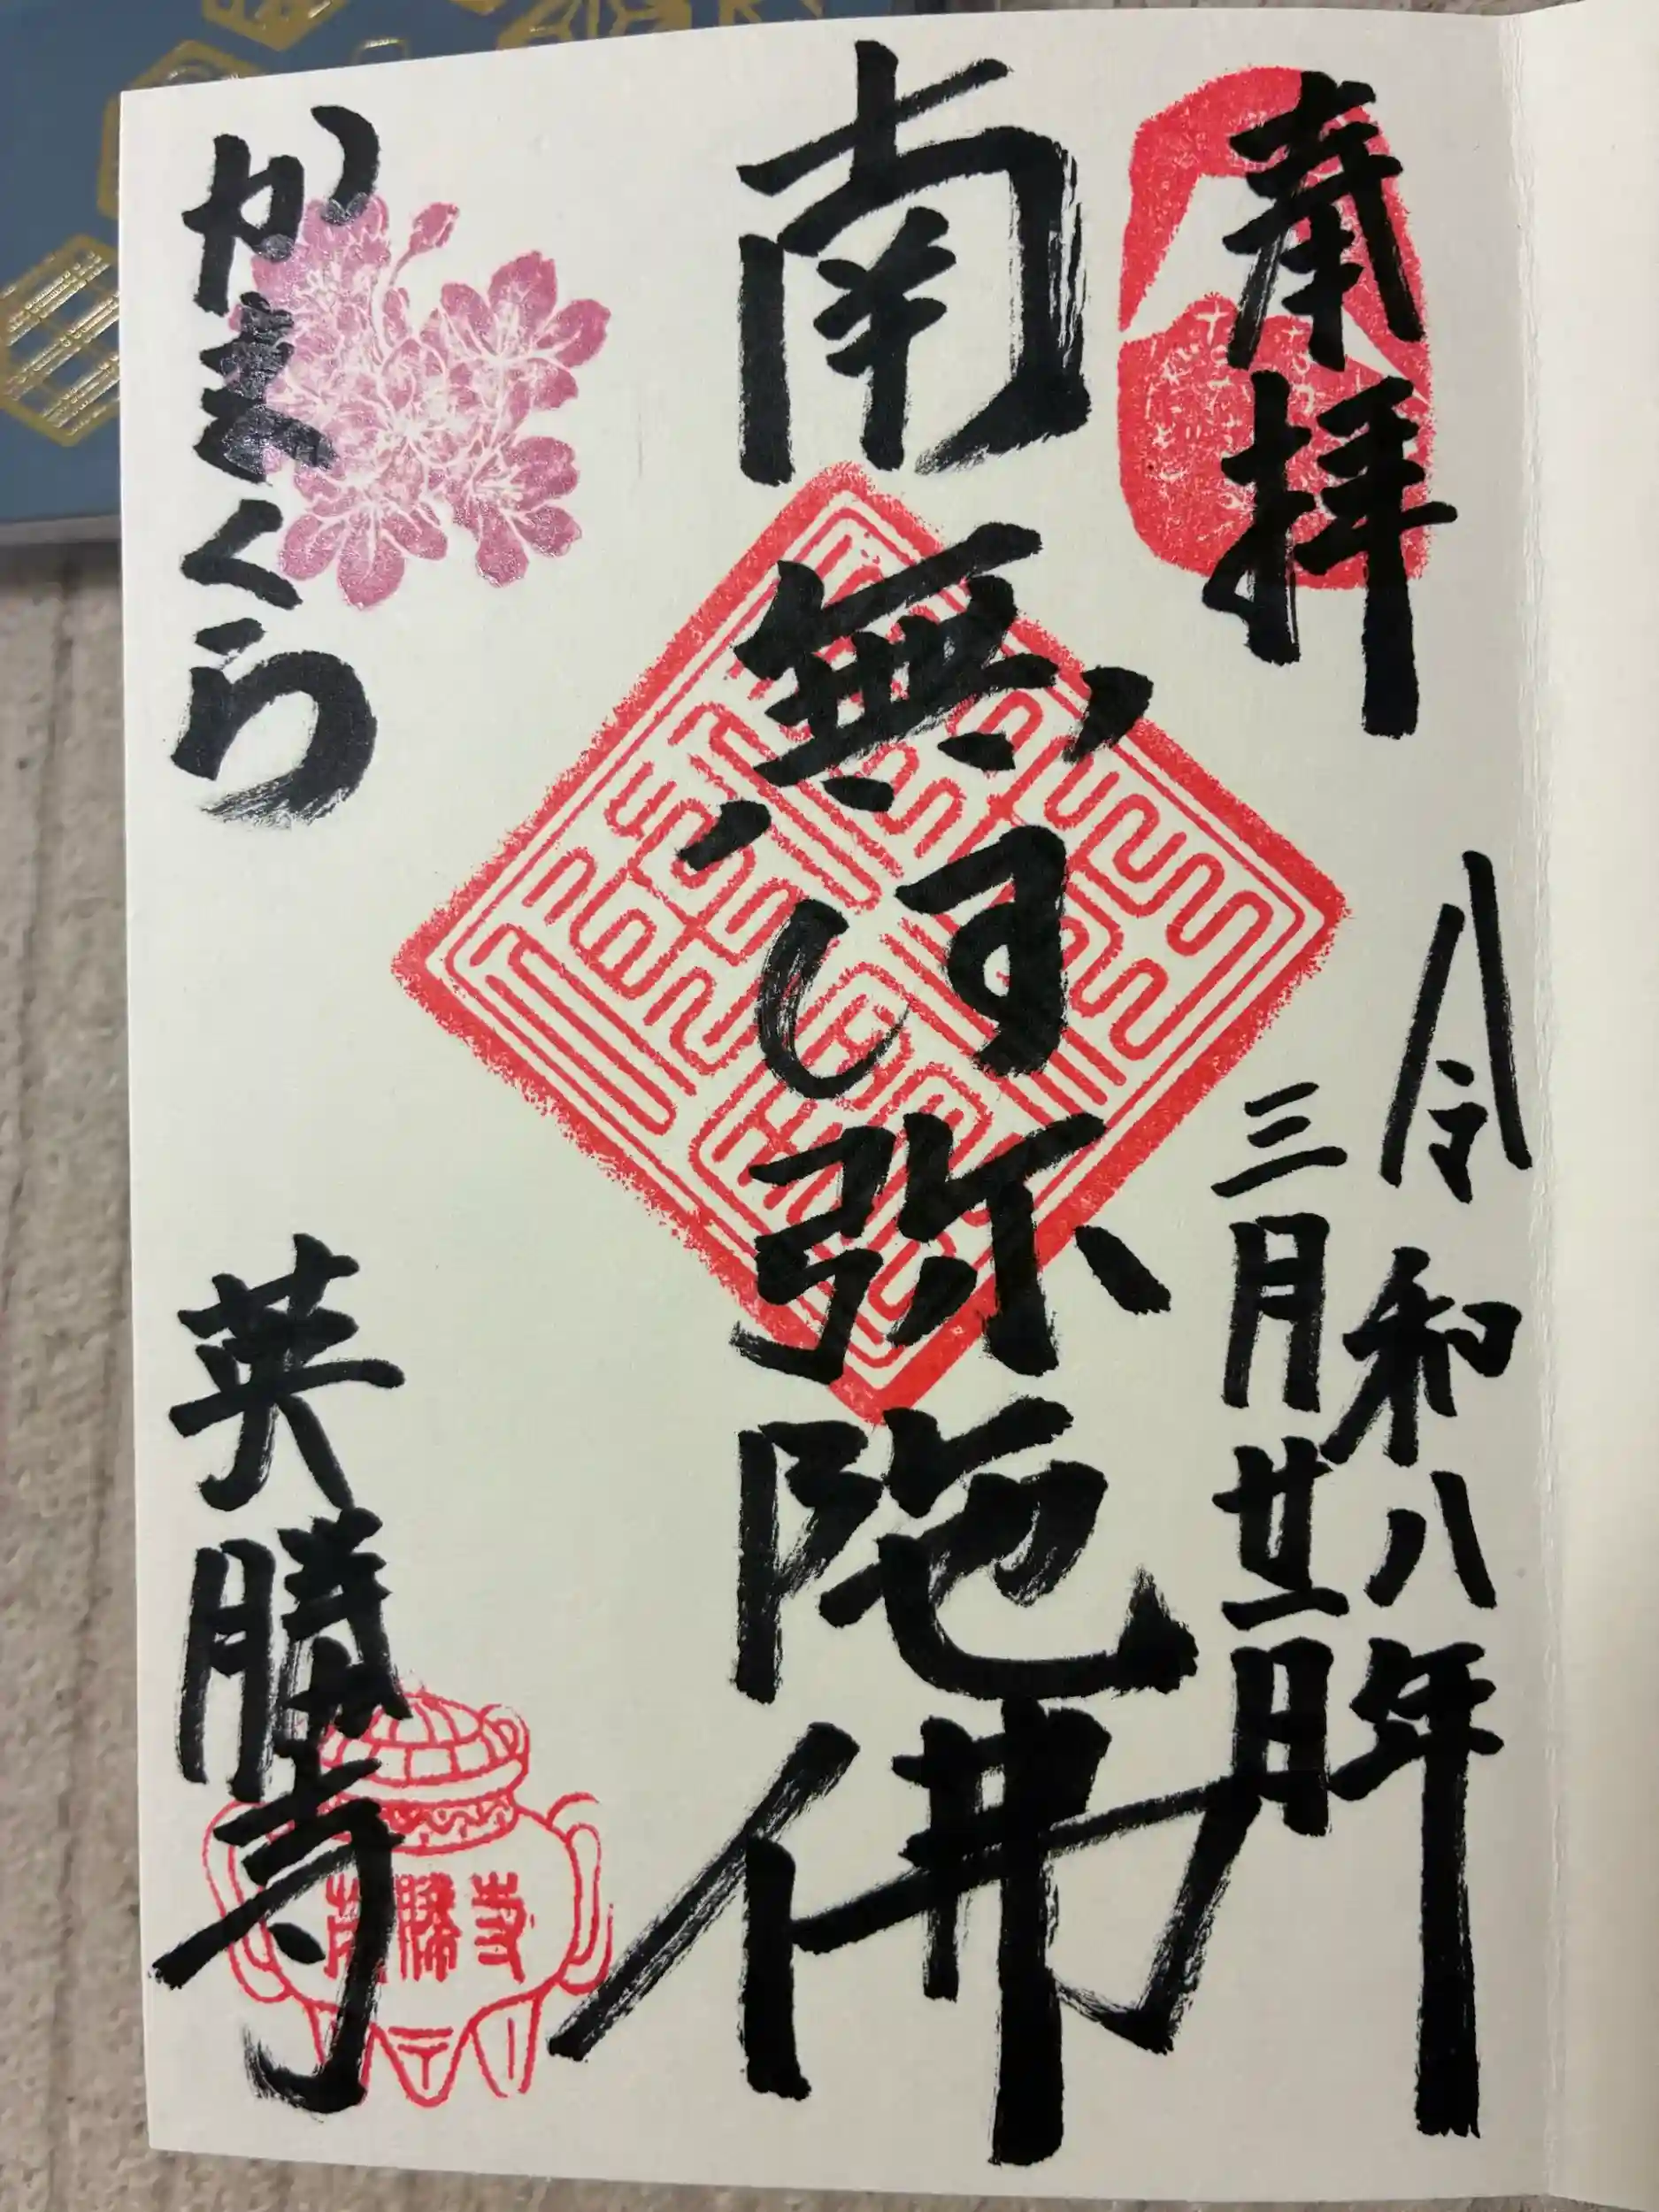 奉拝
令和八年
三月廿一日
南無阿弥陀佛
かまくら
英勝寺
英勝寺